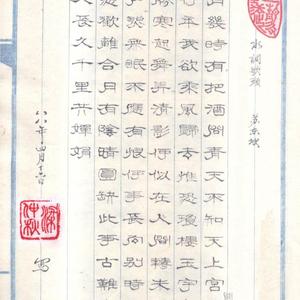 水調歌頭 蘇東坡
月幾時有把酒問青天不知天上宮
何年我欲乘風歸去惟恐瓊樓玉宇
勝寒起舞弄清影何似在人間轉朱
戶照無眠不應有恨何事長向別時
悲歡離合月有陰晴圓缺此事古難
人長久千里共嬋娟
八八年四月十六日
寫